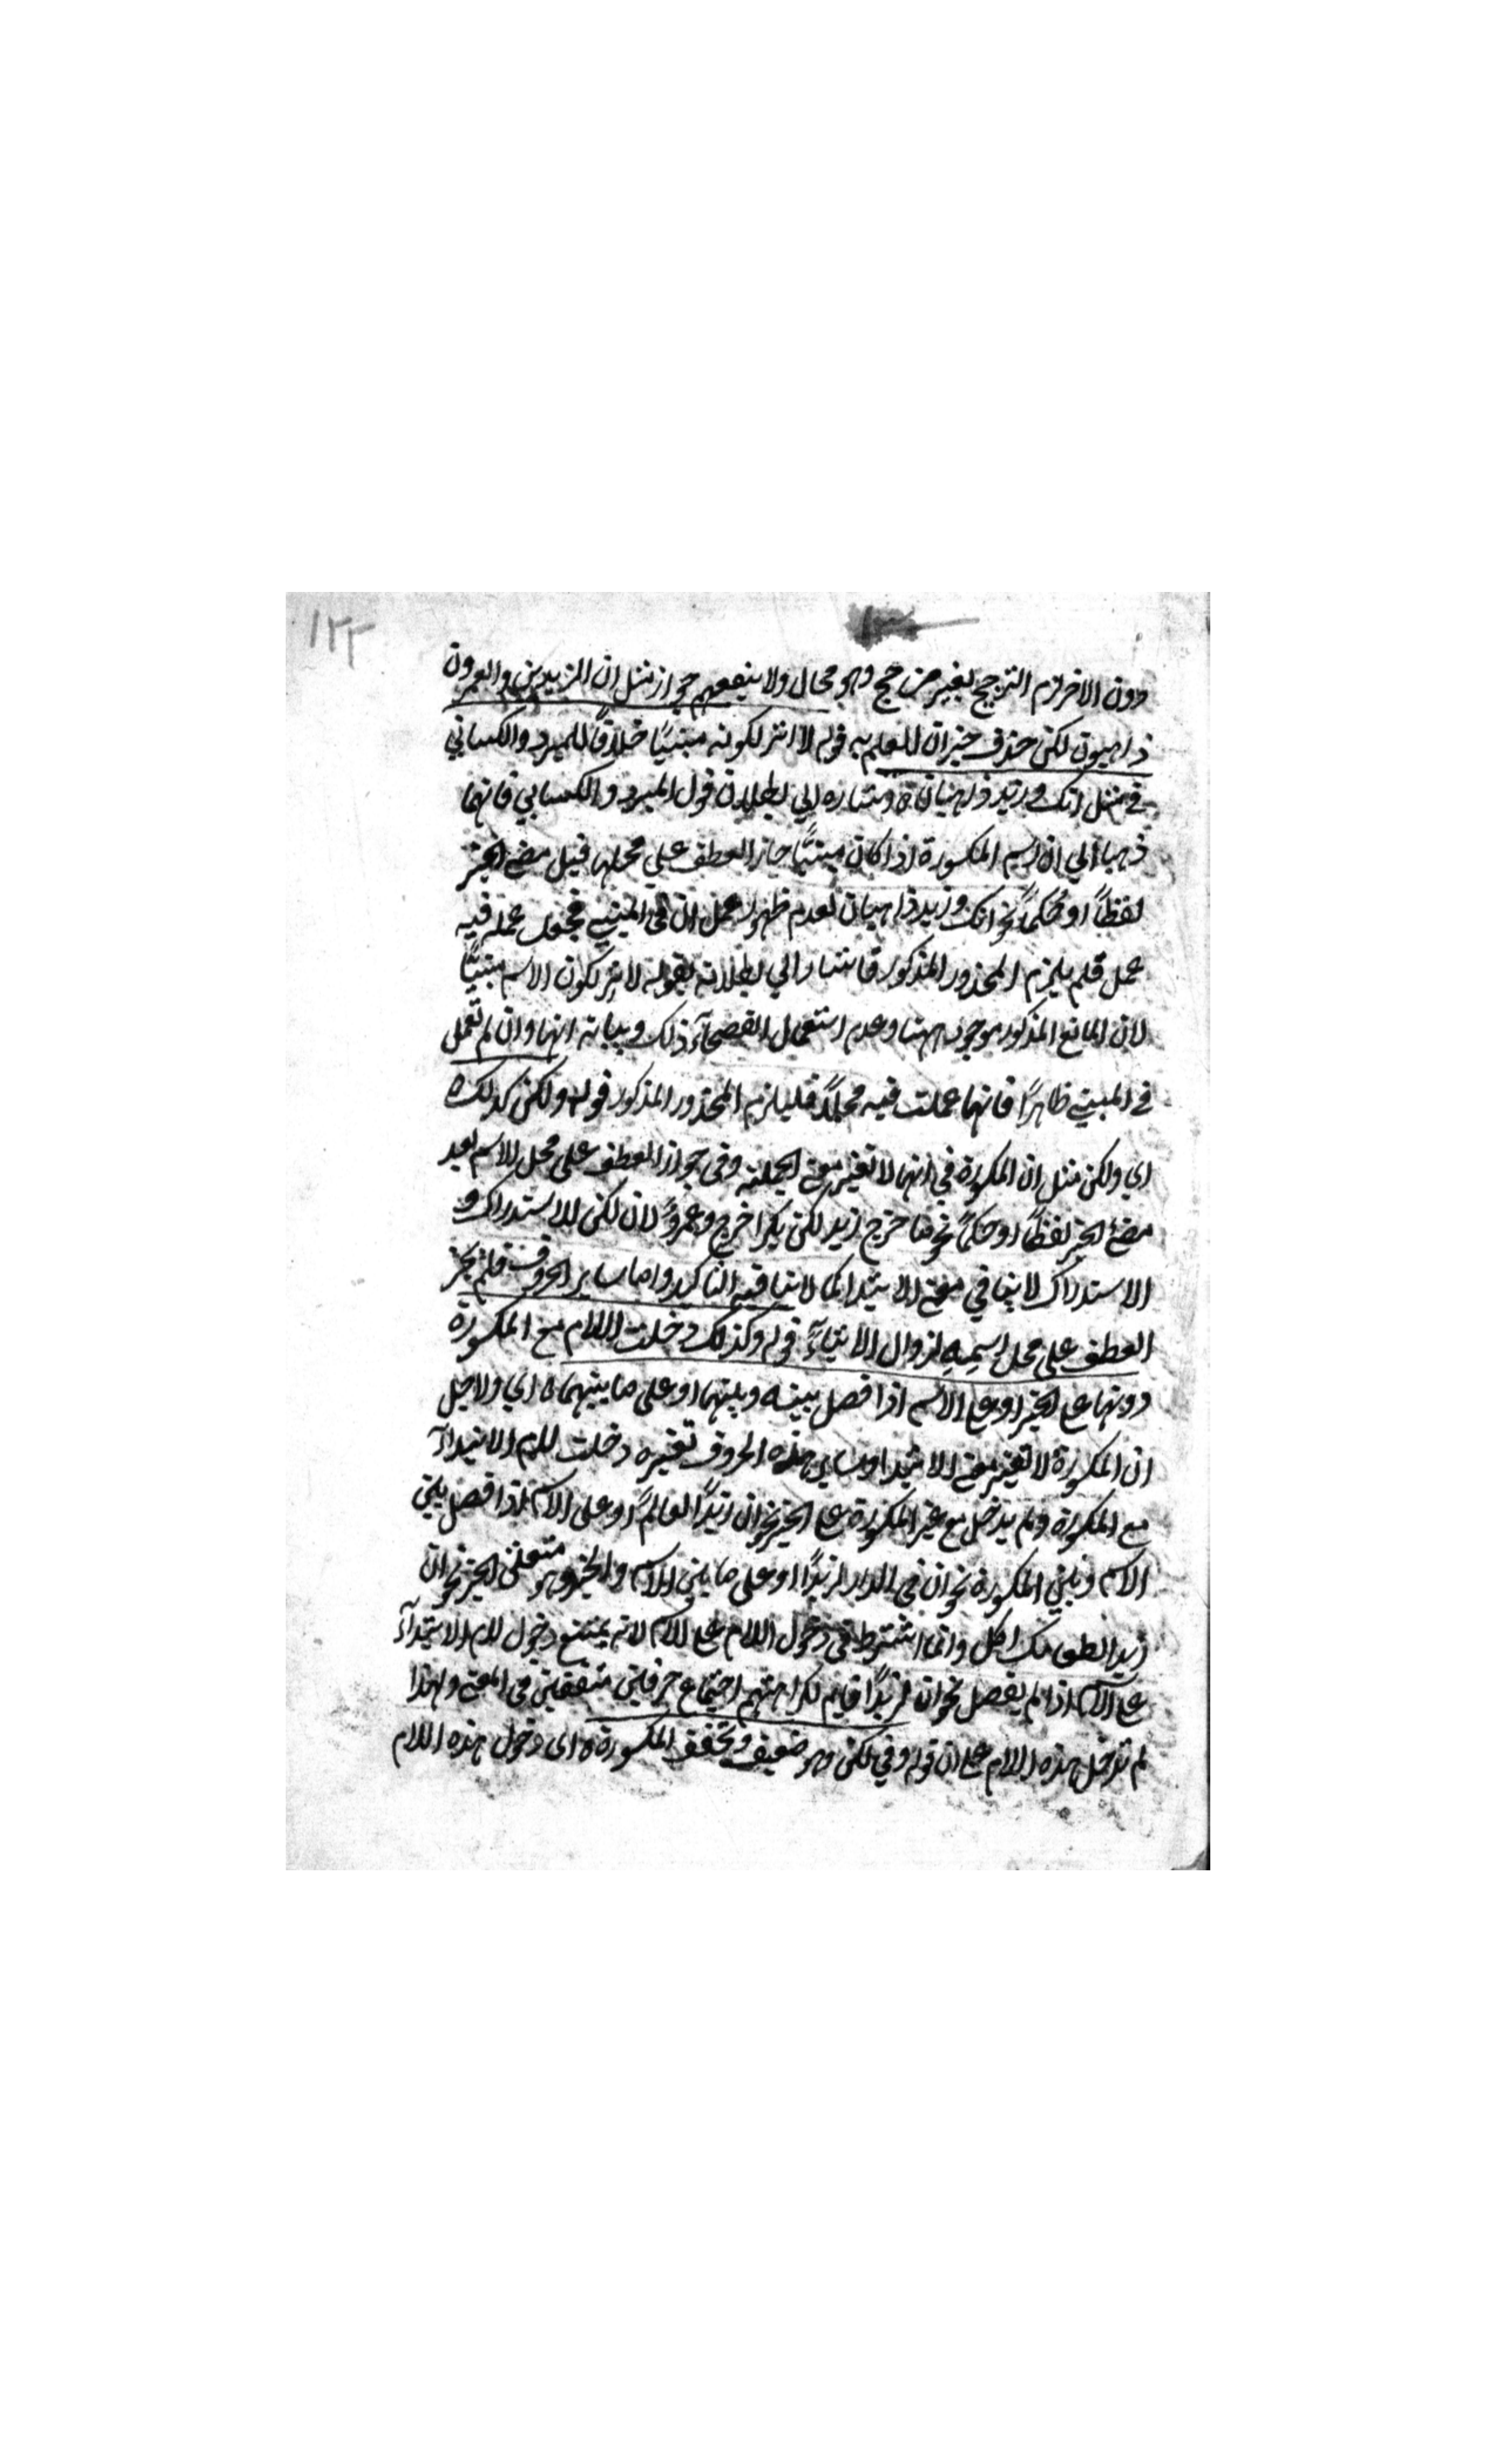 ١٢٢
دون الاخر لزم الترجيح بغير مرجح وهو محال ولا ينفعهم جواز مثل ان الزيدين والعمرون
ذاهبون لكن حذف خبر ان للعلم به قوله لا اثر لكونه مبنيًا خلافًا للمبرد والكسائي
في مثل انك وزيد ذاهبان ه اشاره الي بطلان قول المبرد والكسايي فانهما
ذهبا الي ان اسم المكسورة اذا كان مبنيًا جاز العطف علي محلها قبل مضي الخبر
لفظًا او حكمًا نحو انك وزيد ذاهبان لعدم ظهور عمل ان في المبني فجعل عمله فيه
عمل فلم يلزم المحذور المذكور فاشار الي بطلانه بقوله لا اثر لكون الاسم مبنيًا
لان المانع المذكور موجود ههنا وعدم استعمال الفصحاء ذلك وبيانه انها وان لم تعمل
في المبني ظاهرًا فانهما عملت فيه محلاً فيلزم المحذور المذكور قوله ولكن كذلك ه
اي ولكن مثل ان المكسورة في انها لا تغير معني الجملة وفي جواز العطف علي محل الاسم بعد
مضئ الخبر لفظًا او حكمًا نحو ما خرج زيد لكن بكرا خرج وعمروً لان لكن للاستدراك و
الاستدراك لا ينافي معني الابتدا كما لا ينافيه التاكيد واما ساير الحروف فلم يجز
العطف علي محل اسميه لزوال الابتداءً قوله وكذلك دخلت اللام مع المكسورة
دونها علي الخبر او علي الاسم اذا فصل بينه وبينهما او على ما بينهما ه اي ولاجل
ان المكسورة لا تغير معني الابتدا وساير هذه الحروف تغيره دخلت لام الابتداء
مع المكسورة ولم يدخل مع غير المكسورة علي الخبر نحو ان زيدًا لعالمً او على الاسم اذا فصل بين
الاسم وبين المكسورة نحو ان في الدار لزيدًا او على ما بين الاسم والخبر وهو متعلق الخبر نحو ان
زيدا لطعامك اكل وانما اشترط في دخول اللام علي الاسم لانه يمتنع دخول لام الابتداء
علي الاسم اذا لم يفصل نحو ان لزيدًا قايم لكراهتهم اجتماع حرفين متفقين في المعني ولهذا
لم تدخل هذه اللام علي ان قوله وفي لكن وهو ضعيف وتخفف المكسورة ه اى دخول هذه اللام